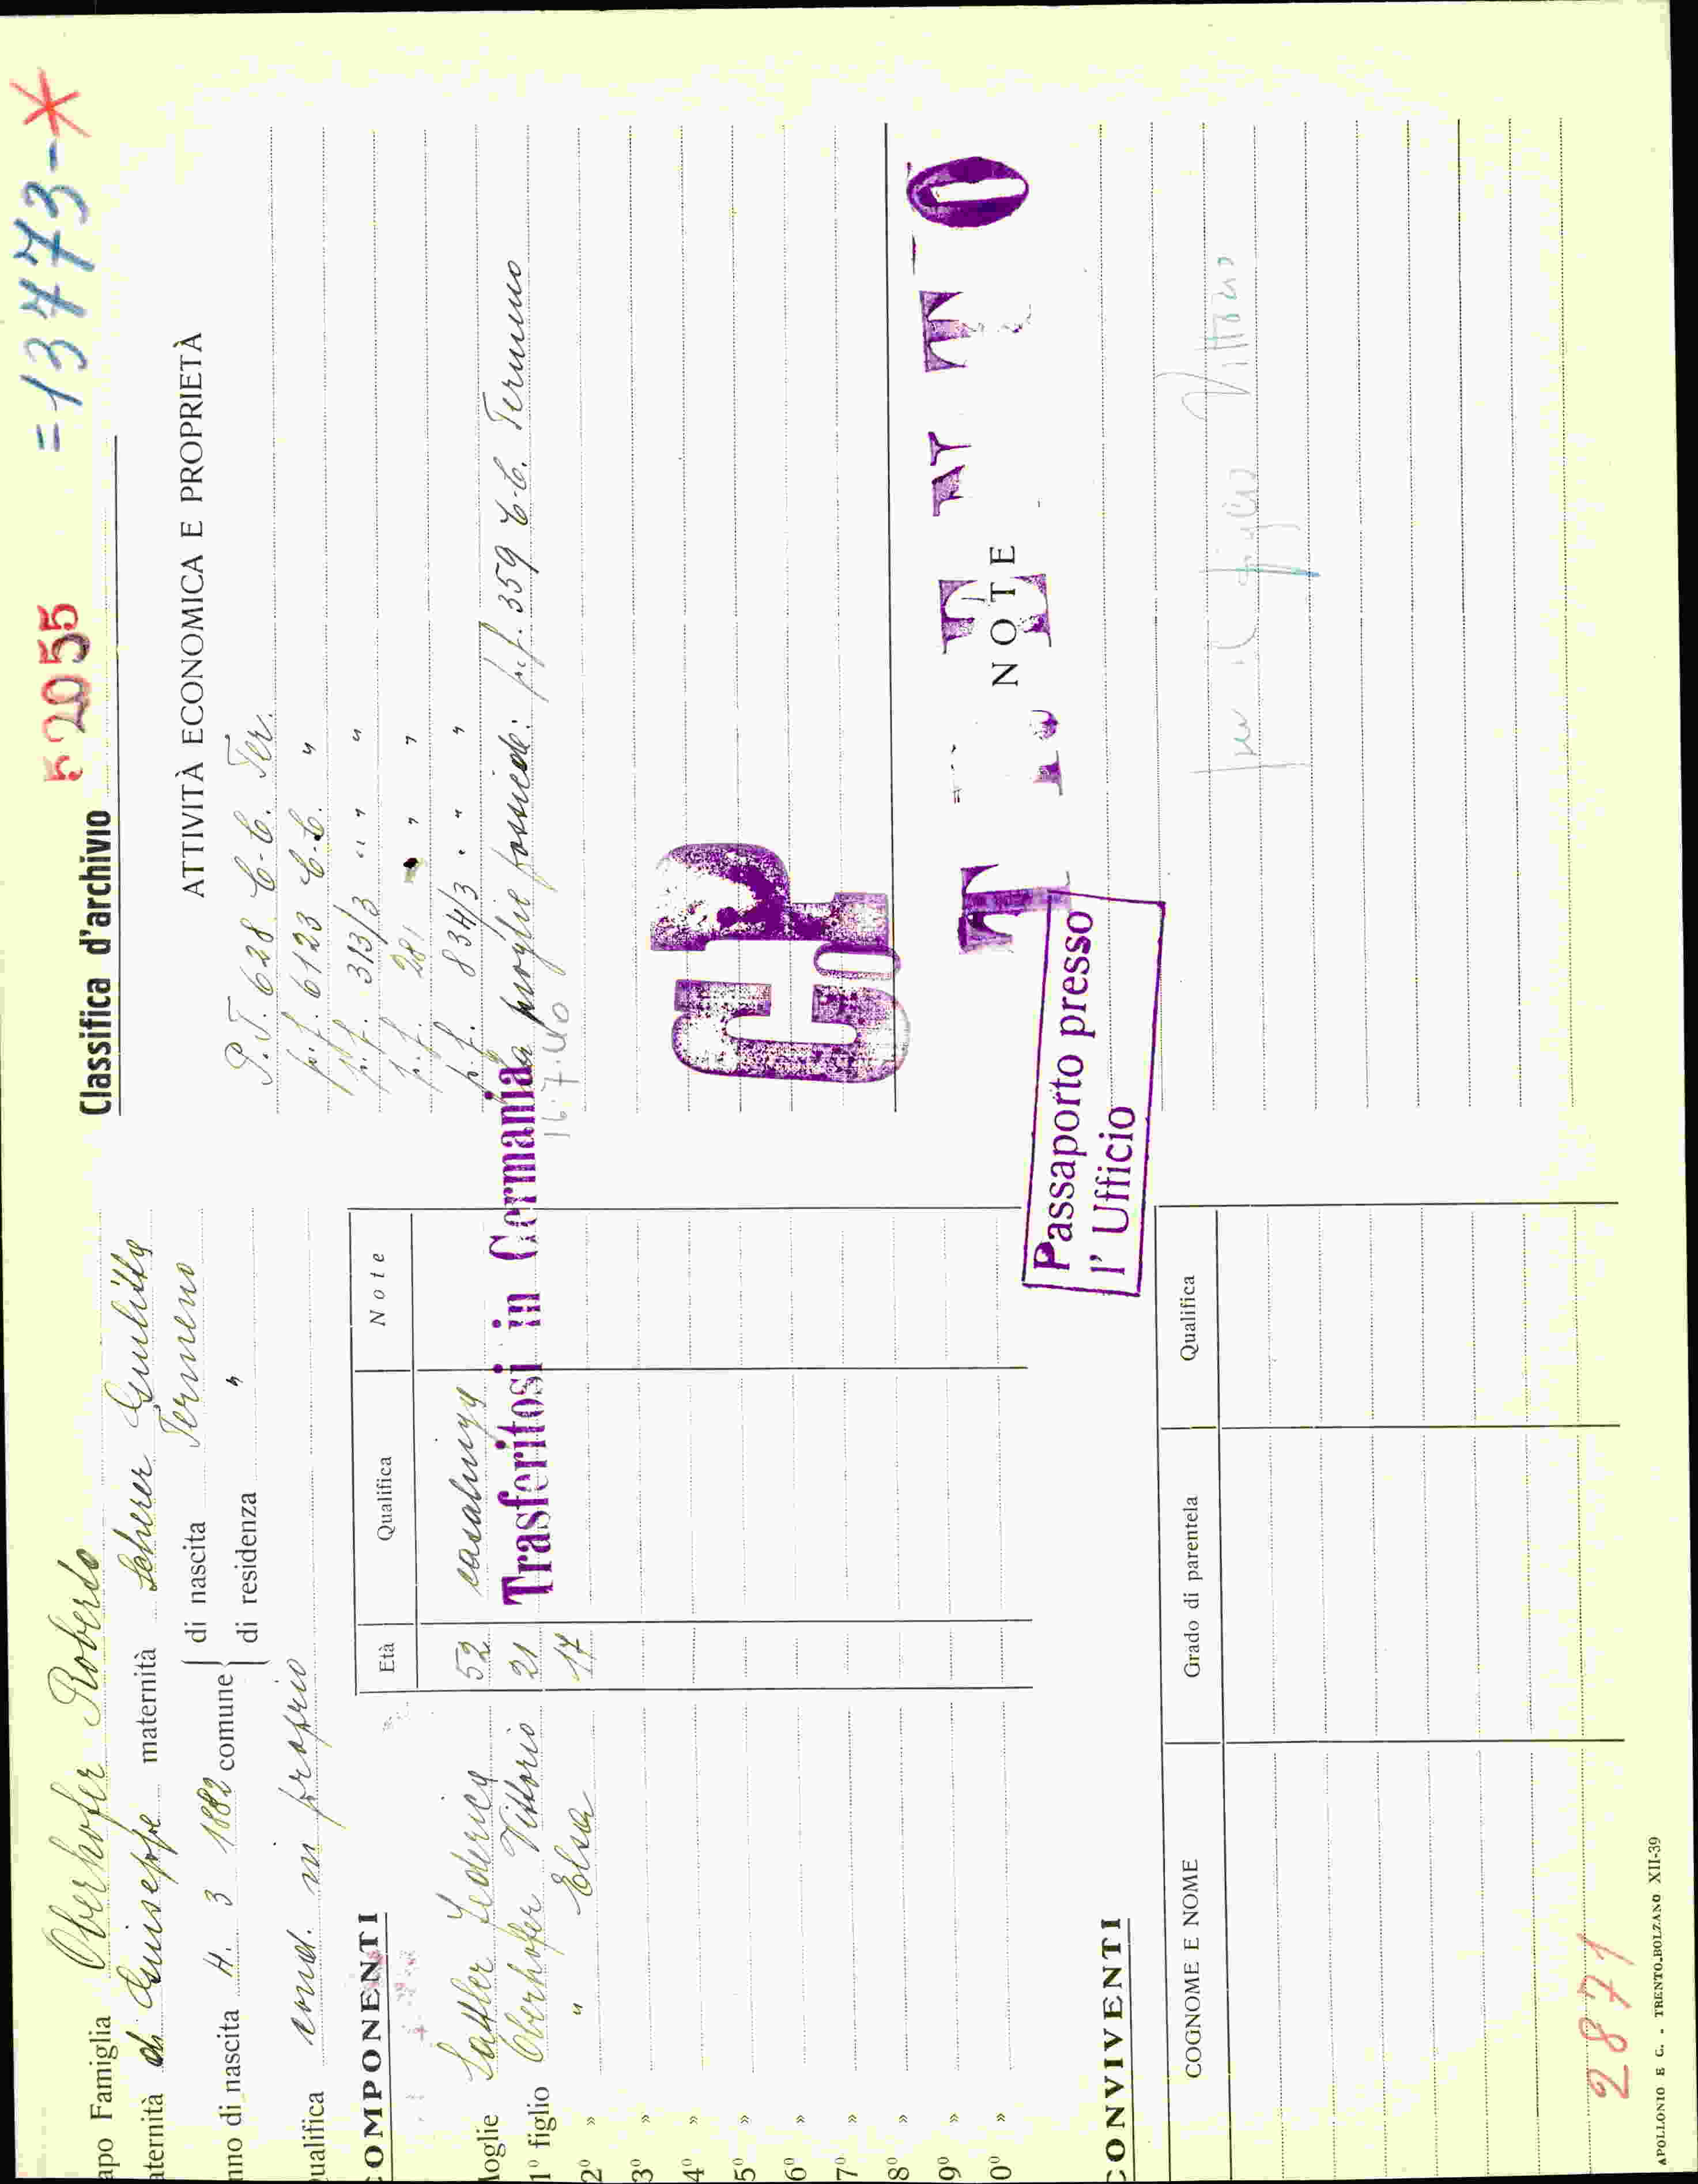 apo Famiglia Oberhofer Roberto
aternità di Giuseppe maternità Scherer Giulitta
nno di nascita 4. 3 1882 comune di nascita Termeno
di residenza "
ualifica cond. in proprio
COMPONENTI
Età Qualifica Note
oglie Sattler Federica 52 casalinga
1º figlio Oberhofer Vittorio 21
2º » " Elsa 17
3º »
4º »
5º »
6º »
7º »
8º »
9º »
0º »
Trasferitosi in Germania
CONVIVENTI
COGNOME E NOME Grado di parentela Qualifica
2871
APOLLONIO E C. - TRENTO-BOLZANO XII-39
Classifica d'archivio 52055 =13473-*
ATTIVITÀ ECONOMICA E PROPRIETÀ
P.T. 628 C.C. Ter.
p.f. 6123 C.C. "
p.f. 313/3 " " "
p.f. 281 " "
p.f. 834/3 " " "
La moglie possiede: p.f. 359 C.C. Termeno
16.7.40
NOTE
Passaporto presso
l' Ufficio
per il figlio Vittorio